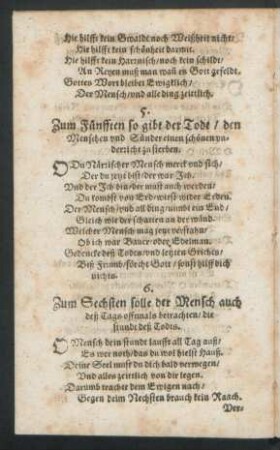 Hie hilfft kein Gewalde noch Weißheit nicht/
Hie hilfft kein schönheit darmit.
Hie hilfft kein Harnisch/noch kein schildt/
An Reyen muß man wañ es Gott gefeldt.
Gottes Wort bleibet Ewigklich/
Der Mensch/vnd alle ding zeitlich.
5.
Zum Fünfften so gibt der Todt / den
Menschen vnd Sünder einen schönen vn-
derricht zu sterben.
O Du Närrischer Mensch merck vnd sich/
Der du jetzt bist/der war Ich.
Vnd der Ich bin/der must auch werden/
Du kombst von Erd/wirst wider Erden.
Der Mensch/vnd all ding/nimbt ein End/
Gleich wie der schatten an der wänd.
Welcher Mensch mag jetzt verstahn/
Ob ich war Baur/oder Edelman.
Gedencke deß Todes/vnd letzten Grichts/
Biß Fromb/förcht Gott/sonst hilff dich
nichts.
6.
Zum Sechsten solle der Mensch auch
deß Tags offtmals betrachten/die
stundt deß Todts.
O Mensch dein stundt laufft all Tag auß/
Es wer noth/das du wol hielst Hauß.
Deine Seel must du dich bald verwegen/
Vnd alles zeitlich von dir legen.
Darumb trachte dem Ewigen nach/
Gegen deim Nechsten brauch kein Raach.
Ver-